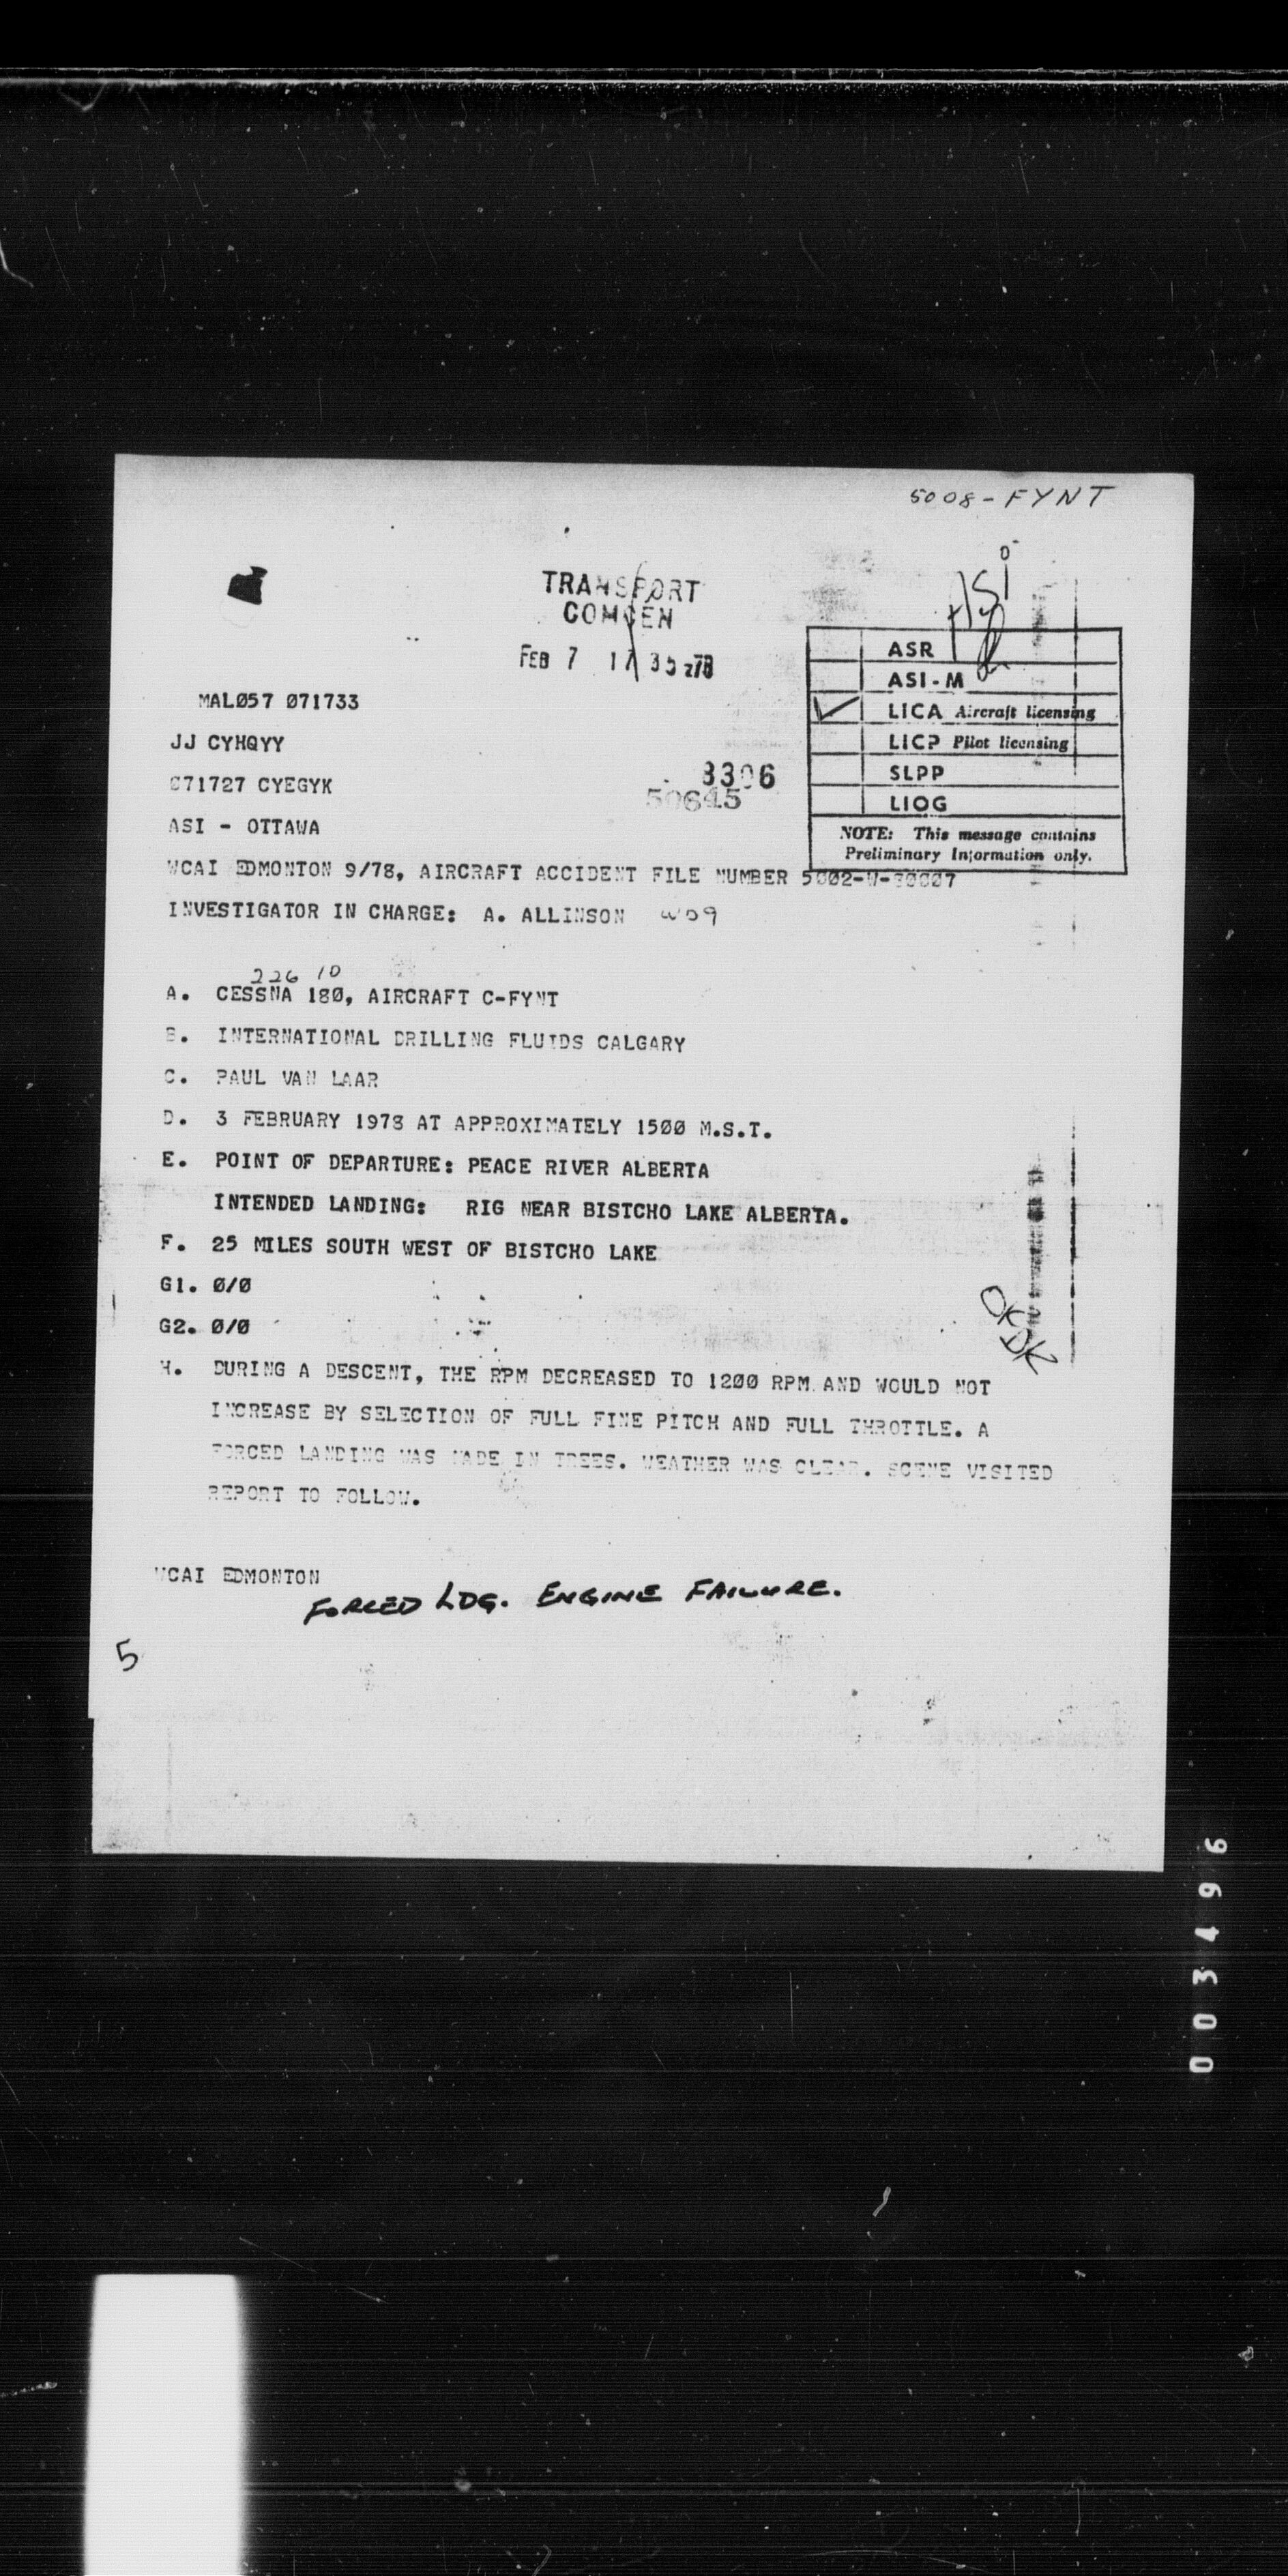 5008-FYNT
TRANSPORT
COMCEN
FEB 7 17 35 z78
ASI
ASR
ASI-M
LICA Aircraft licensing
LICP Pilot licensing
SLPP
LIOG
NOTE: This message contains
Preliminary Information only.
MALØ57 Ø71733
JJ CYHQYY
Ø71727 CYEGYK
3306
50645
ASI - OTTAWA
WCAI EDMONTON 9/78, AIRCRAFT ACCIDENT FILE NUMBER 5ØØ2-W-
INVESTIGATOR IN CHARGE: A. ALLINSON W09
226 10
A. CESSNA 18Ø, AIRCRAFT C-FYNT
B. INTERNATIONAL DRILLING FLUIDS CALGARY
C. PAUL VAN LAAR
D. 3 FEBRUARY 1978 AT APPROXIMATELY 15ØØ M.S.T.
E. POINT OF DEPARTURE: PEACE RIVER ALBERTA
INTENDED LANDING: RIG NEAR BISTCHO LAKE ALBERTA.
F. 25 MILES SOUTH WEST OF BISTCHO LAKE
G1. Ø/Ø
G2. Ø/Ø
H. DURING A DESCENT, THE RPM DECREASED TO 12ØØ RPM AND WOULD NOT
INCREASE BY SELECTION OF FULL FINE PITCH AND FULL THROTTLE. A
FORCED LANDING WAS MADE IN TREES. WEATHER WAS CLEAR. SCENE VISITED
REPORT TO FOLLOW.
WCAI EDMONTON
FORCED LDG. ENGINE FAILURE.
5
003496